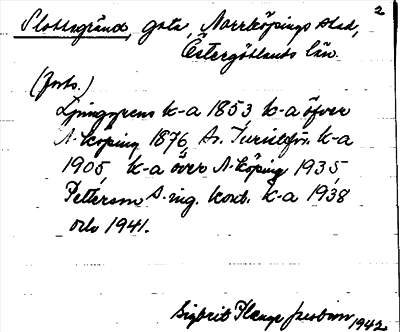 2
Slottsgränd, gata, Norrköpings stad,
Östergötlands län.
(forts.)
Ljunggrens k-a 1853, k-a öfver
N-köping 1876, Sv. Turistför. k-a
1905, k-a över N-köping 1935,
Petterson S-ing. kort. k-a 1938
och 1941.
Sigbrit Plænge Jacobson 1942